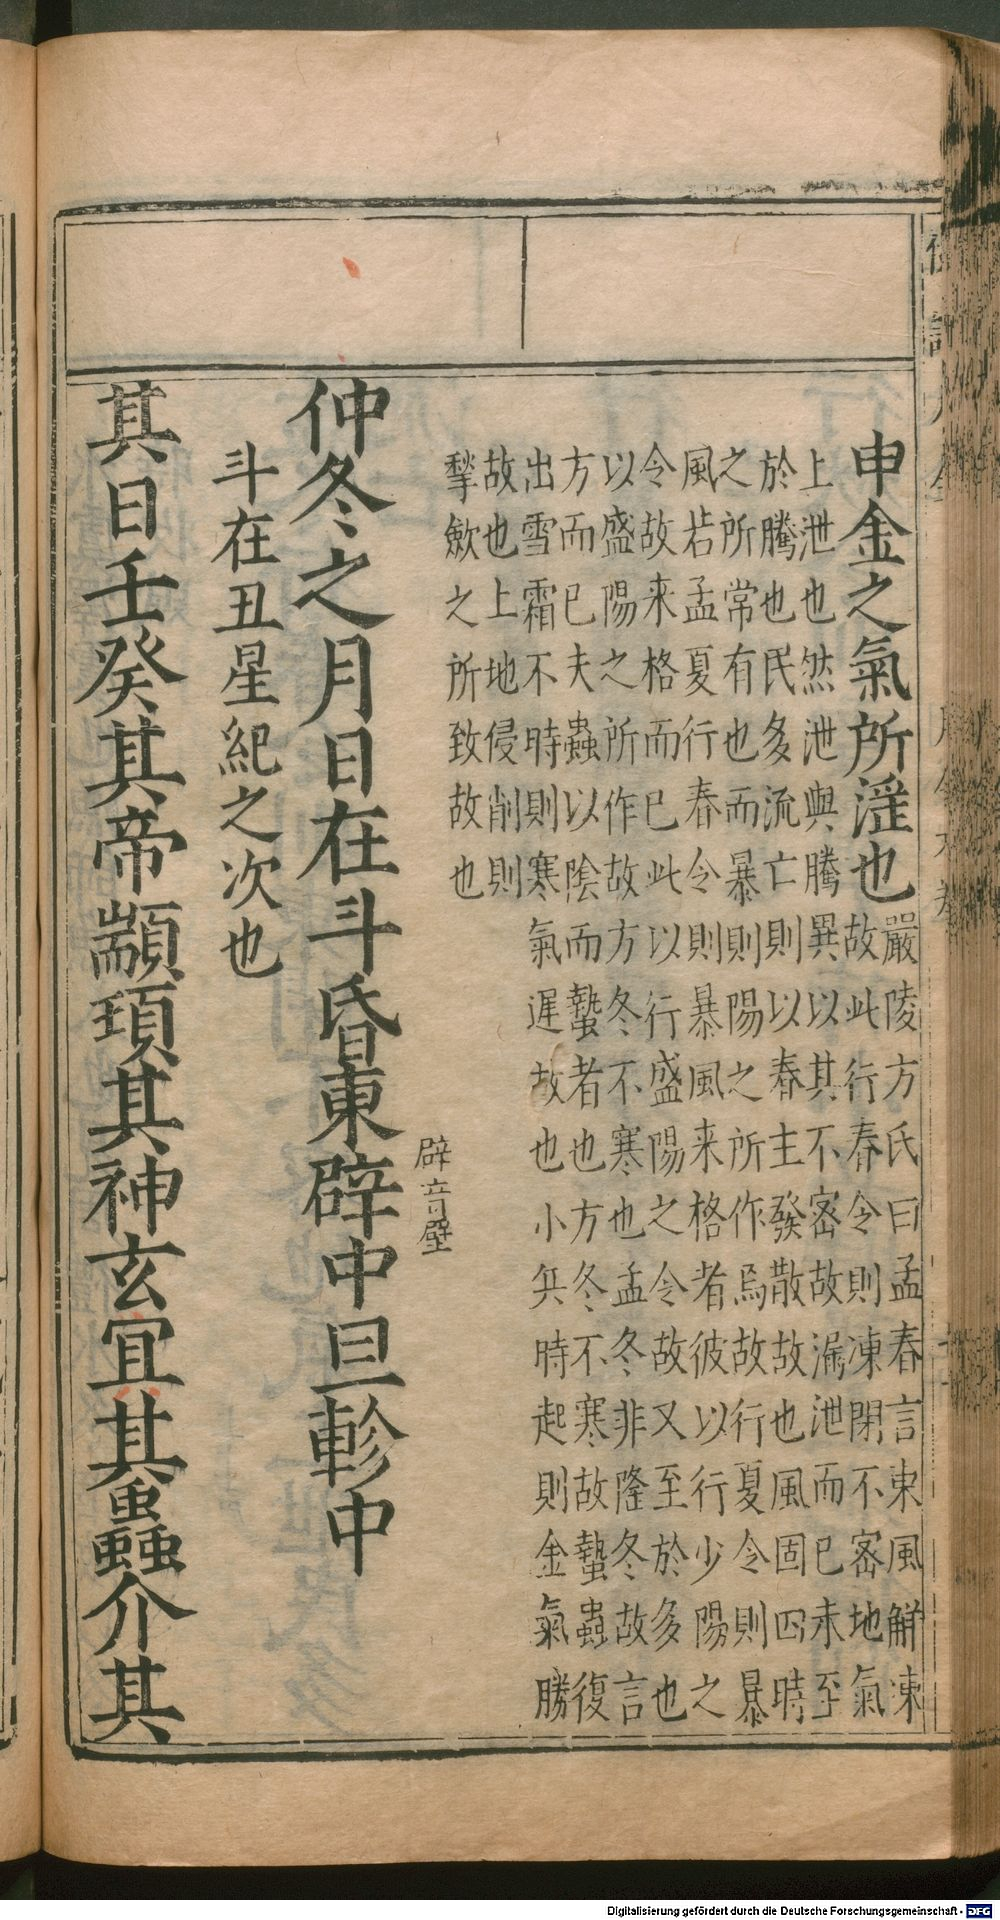 申金之氣所淫也
嚴陵方氏曰孟春言東風解凍
故此行春令則凍閉不宻地氣
上泄也然泄與騰異以其不宻故漏泄而已未至
於騰也民多流亡則以春主發散故也風固四時
之所常有也而暴則陽之所作焉故行夏令則暴
風若孟夏行春令則暴風来格者彼以行少陽之
令故来格而已此以行盛陽之令故又至於多也
以盛陽之所作故方冬不寒也孟冬非隆冬故言
方而已夫蟲以陰而蟄者也方冬不寒故蟄蟲復
出雪霜不時則寒氣遲故也小兵時起則金氣勝
故也上地侵削則
揫歛之所致故也
辟音壁
仲冬之月日在斗昏東辟中旦軫中
斗在丑星紀之次也
其日壬癸其帝顓頊其神玄冥其蟲介其
Digitalisierung gefördert durch die Deutsche Forschungsgemeinschaft - DFG